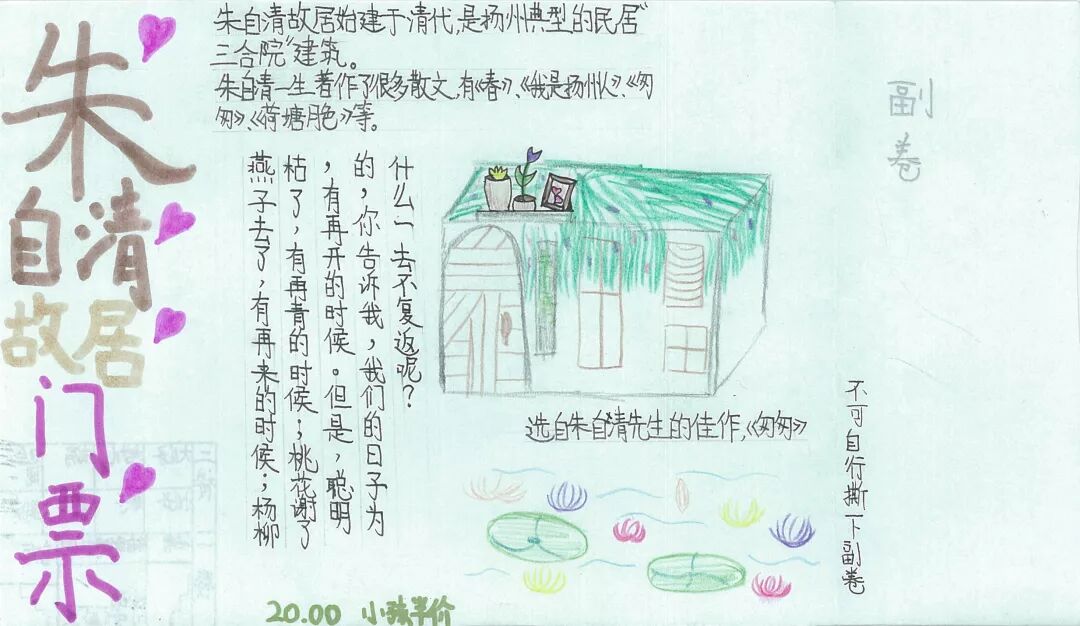 朱自清故居门票
朱自清故居始建于清代,是扬州典型的民居"
三合院"建筑。
朱自清一生著作了很多散文,有《春》、《我是扬州人》、《匆
匆》、《荷塘月色》等。
燕子去了,有再来的时候;杨柳
枯了,有再青的时候;桃花谢了
,有再开的时候。但是,聪明
的,你告诉我,我们的日子为
什么一去不复返呢?
选自朱自清先生的佳作,《匆匆》
20.00 小孩半价
副卷
不可自行撕下副卷